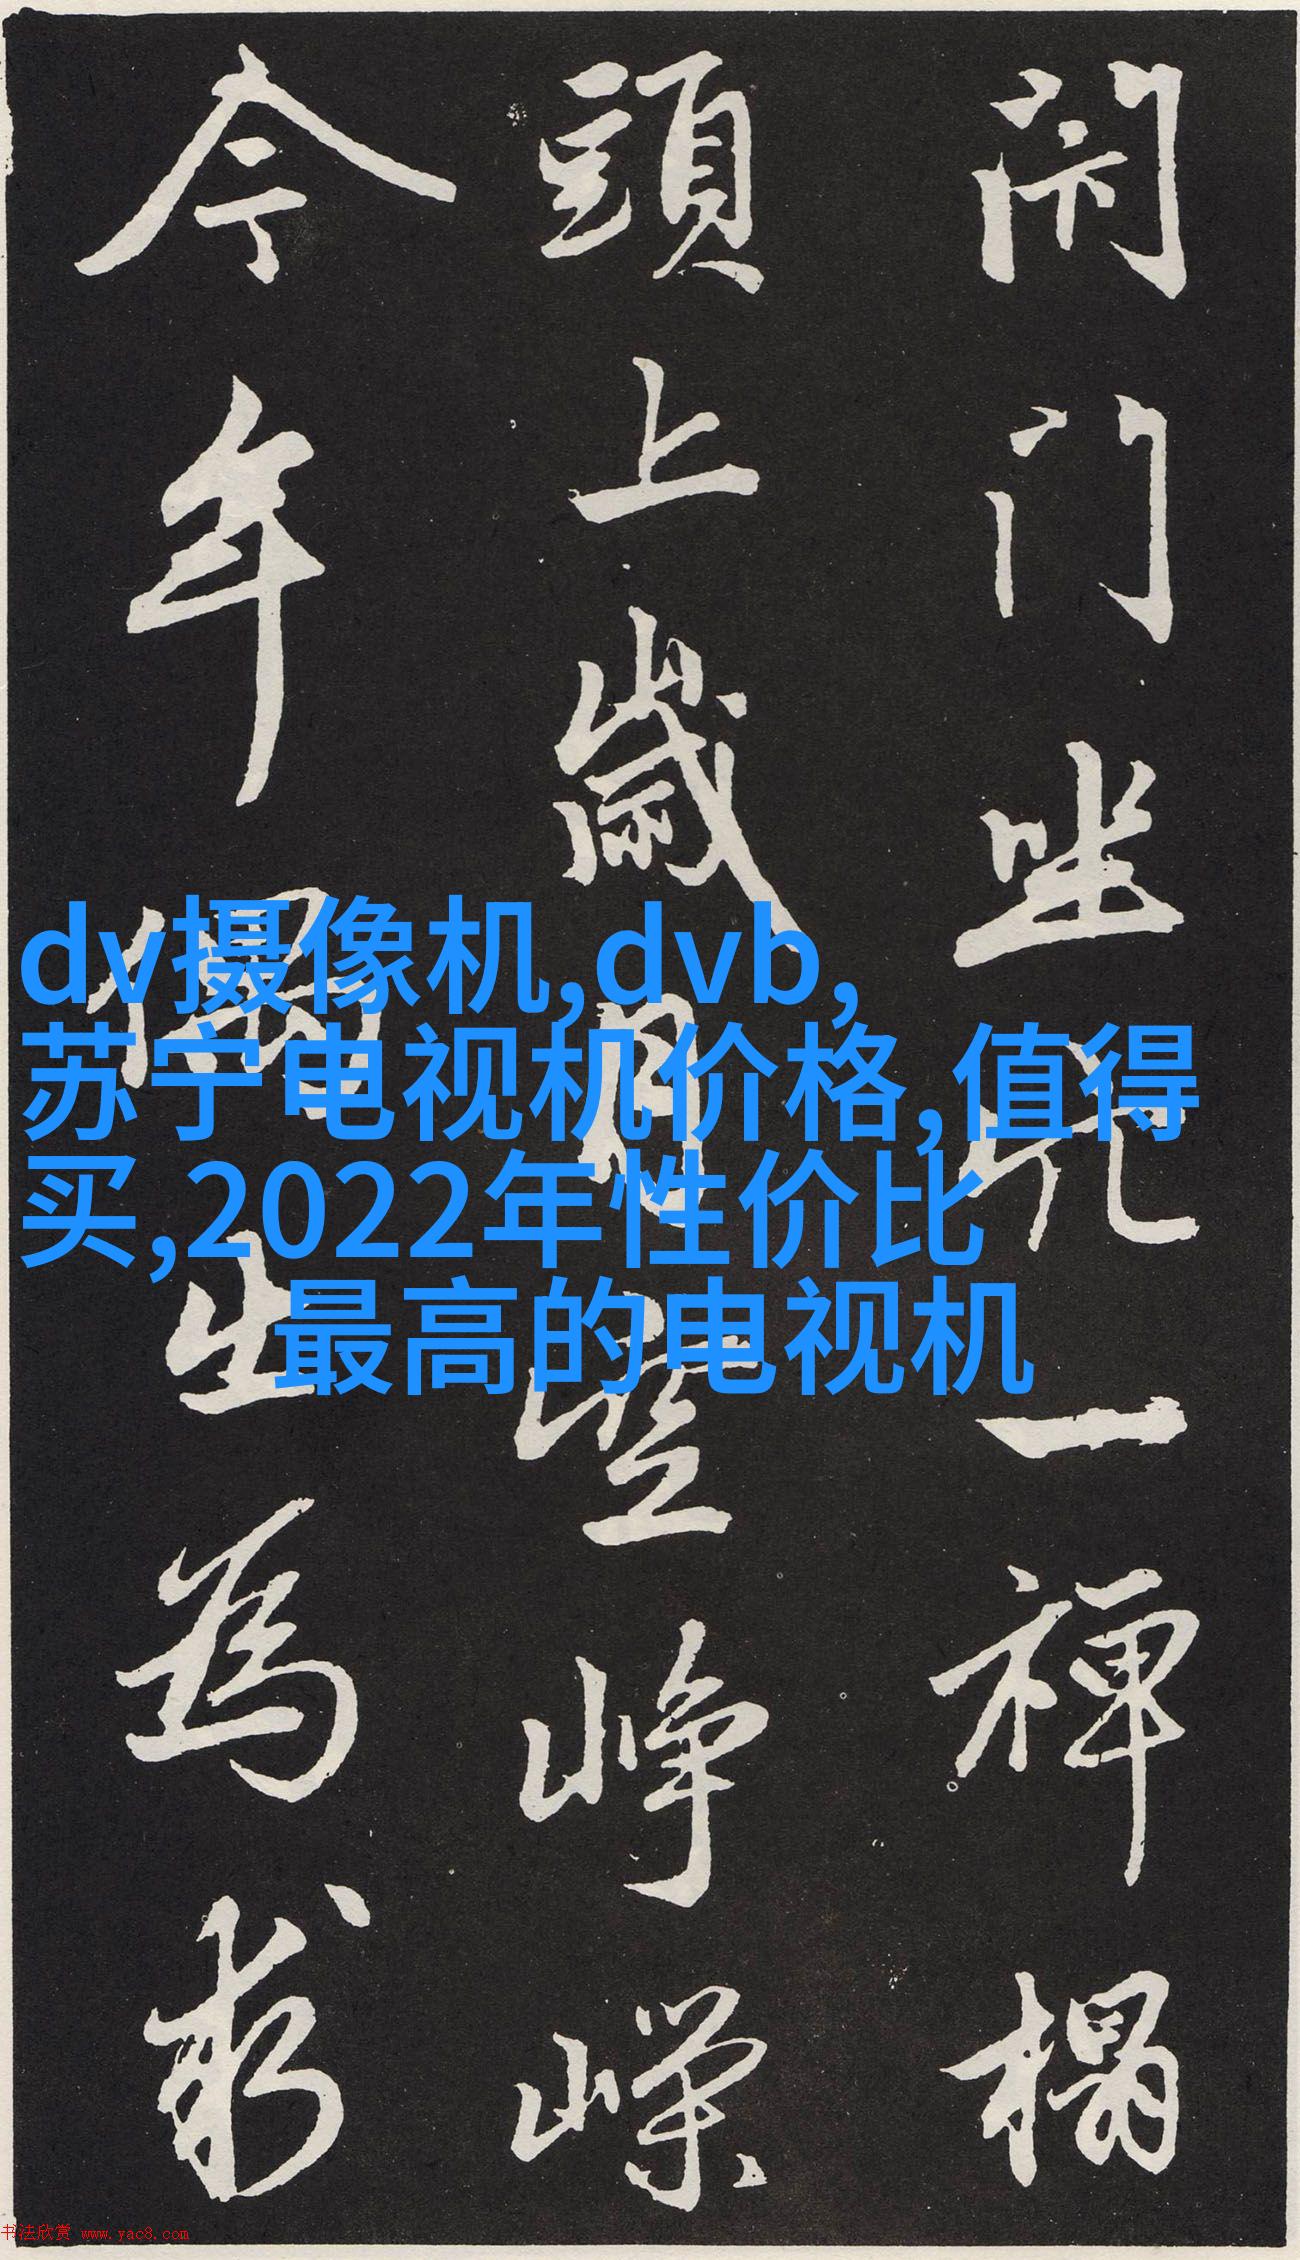 闭门坐穴一禅榻
頭上歲月空峥嵘
今年偶出為求
dv摄像机,dvb,
苏宁电视机价格,值得
买,2022年性价比
最高的电视机
书法欣赏 www.yac8.com